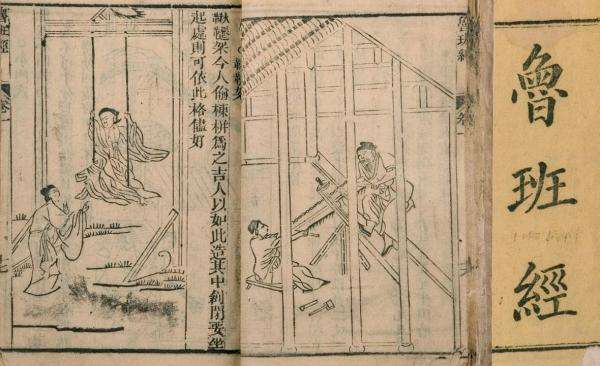 魯班經
魯班經
鞦韆架今人偷棟栟爲之吉人以如此造其中創閑要坐
起處則可依此格儘好
魯班經
卷一